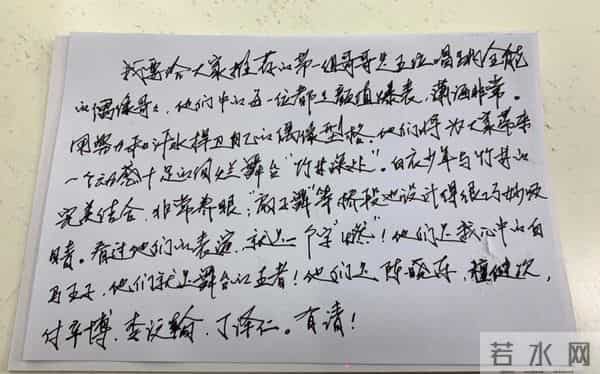 我要给大家推荐的第一组哥哥是五位唱跳全能
的偶像哥哥，他们中的每一位都是颜值爆表，潇洒非常。
用努力和汗水捍卫自己的偶像型格。他们将为大家带来
一个动感十足的国风舞台“竹林深处”。白衣少年与竹林的
完美结合，非常养眼；“扇子舞”等桥段也设计得很巧妙吸
睛。看过他们的表演，就一个字“燃”！他们是我心中的白
马王子，他们就是舞台的王者！他们是陈晓东，檀健次，
付辛博，李汶翰，丁泽仁。有请！
若水网